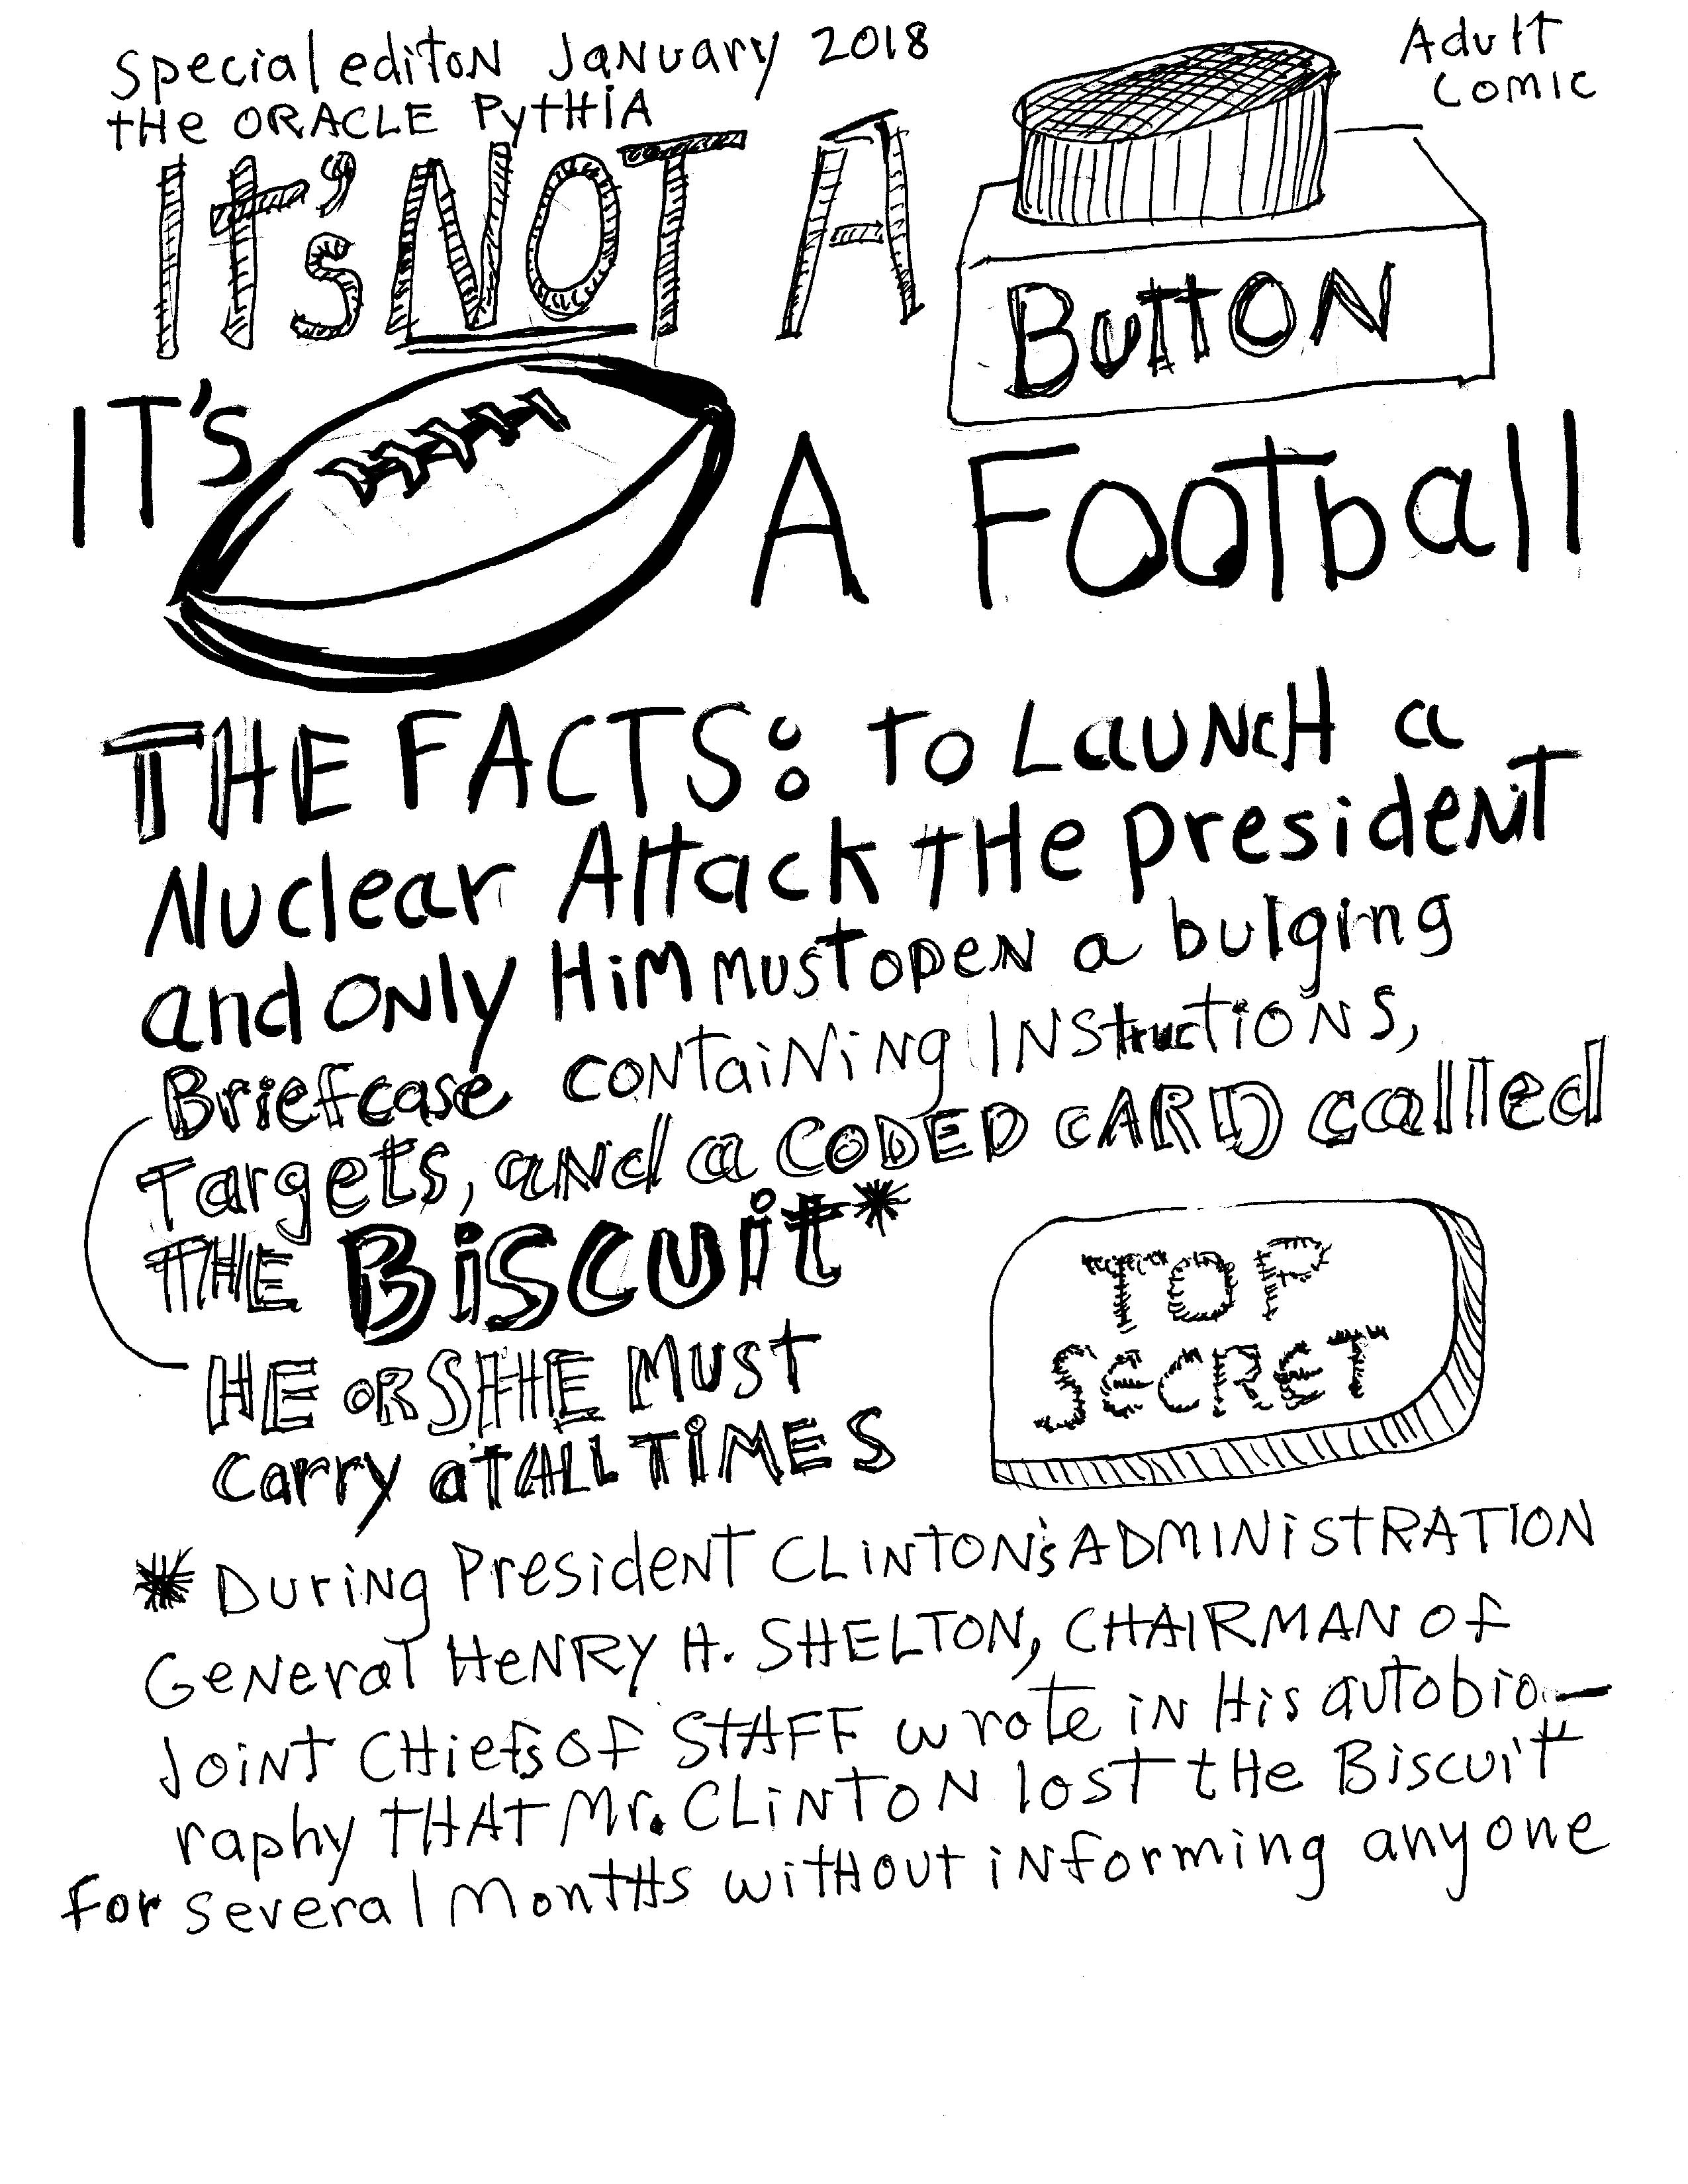 Special editon January 2018
Adult
Comic
the ORACLE PytHiA
It's NOT A
ButtoN
IT's A Football
THE FACTS: To LauNcH a
Nuclear Attack tHe president
and oNly HiM MusT opeN a bulging
Briefcase coNtaiNiNg INStructioNs,
Targets, aNd a CODED cARD called
THE BiScuit*
HE oR SHE MusT
Carry aT ALL TiMES
TOP
SECRET
* DuriNg PresideNT CLiNTON's ADMiNiStRATION
GeNeral HeNRY H. SHELTON, CHAIRMAN of
JoiNt CHiefs oF StAFF wrote iN His autobio-
raphy tHAT Mr. CLiNToN lost tHe Biscuit
For several MontHs witHout iNforming anyone